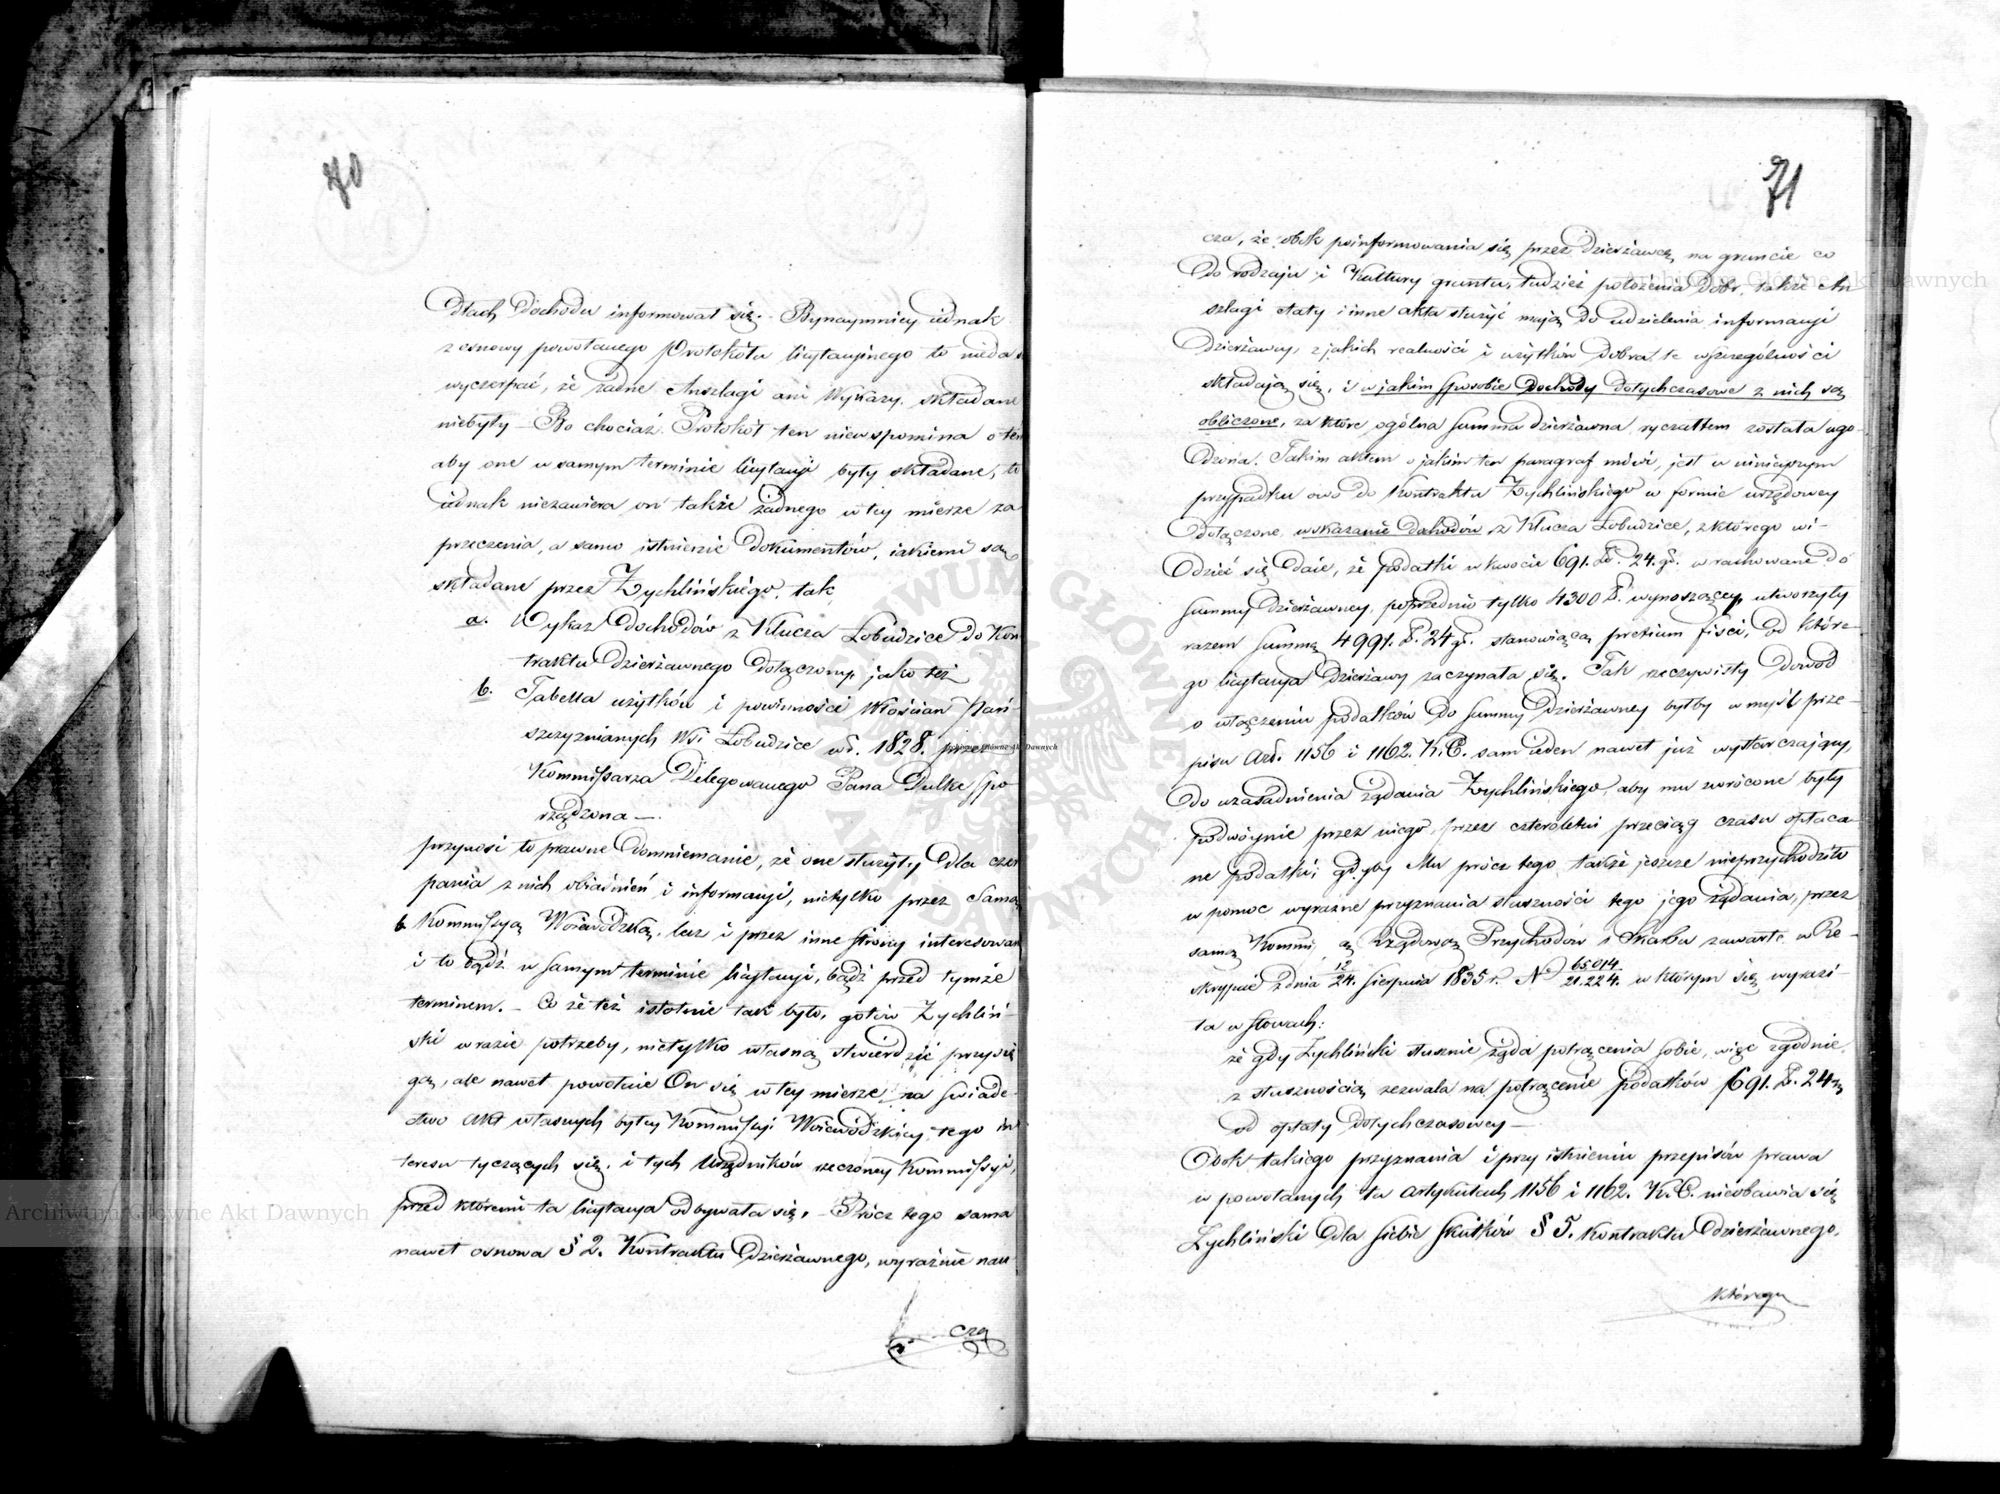 70
dłach dochodu informował się. – Bynaymniey iednak
z osnowy powołanego Protokółu licytacyinego to nieda
wyczerpać, że żadne Anszlagi ani Wykazy składane
niebyły – Bo chociaż Protokół ten niewspomina o tem
aby one w samym terminie licytacyi były składane, to
iednak niezawiera on także żadnego w tey mierze za
przeczenia, a samo istnienie dokumentów, iakiemi są
składane przez Zychlińskiego, tak
a. Wykaz dochodów z Klucza Łobudzice do Kon
traktu dzierżawnego dołączony, jako też
b. Tabella użytków i powinności Włościan Pań-
szczyznianych Wsi Łobudzice w r. 1828. przez
Kommissarza Delegowanego Pana Dulke spo
rządzona —.
przynosi to prawne domniemanie, że one służyły dla czer
pania z nich obiaśnień i informacyi, nietylko przez Samą
Kommissyą Woiewódzką, lecz i przez inne strony interesowan
i to bądź w samym terminie licytacyi, bądź przed tymże
terminem. – Co że też istotnie tak było, gotów Zychliń-
ski w razie potrzeby, nietylko własną stwierdzić przysię
gą, ale nawet powołuie On się w tey mierze na świade-
ctwo akt własnych byłey Kommissyi Woiewódzkiey, tego in
teresu tyczących się, i tych Urzędników rzeczoney Kommissyi,
przed któremi ta licytacya odbywała się. – Prócz tego sama
nawet osnowa § 2. Kontraktu dzierżawnego, wyraźnie nau
cza
71
cza, że obok poinformowania się przez dzierżawcę na gruncie co
do rodzaju i Kultury gruntu, tudzież położenia dóbr, także An
szlagi etaty i inne akta służyć mają do udzielenia informacyi
dzierżawcy, z jakich realności i użytków dobra te w szczególności
składają się, i w jakim sposobie dochody dotychczasowe z nich są
obliczone, za które ogólna summa dzierżawna ryczałtem została ugo-
dzona. Takim aktem o jakim ten paragraf mówi, jest w ninieyszym
przypadku owo do Kontraktu Zychlińskiego w formie urzędowey
dołączone wskazanie dochodów z Klucza Łobudzice, z którego wi-
dzieć się daie, że podatki w kwocie 691. zł. 24. gr. wrachowane do
summy dzierżawney, poprzednio tylko 4300 zł. wynoszącey, utworzyły
razem summę 4991. zł. 24 gr. stanowiącą pretium fisci, od które-
go licytacya dzierżawy zaczynała się. Tak rzeczywisty dowód
o włączeniu podatków do summy dzierżawney byłby w myśl prze-
pisu Art. 1156 i 1162. K. C. sam ieden nawet już wystarczający,
do uzasadnienia żądania Zychlińskiego, aby mu zwrócone były
podwóynie przez niego, przez czteroletni przeciąg czasu opłaca-
ne podatki; gdyby Mu prócz tego także jeszcze nieprzychodziło
w pomoc wyraźne przyznania słuszności tego jego żądania, przez
samą Kommi ą Rządową Przychodów i Skarbu zawarte w Re-
skrypcie z dnia 12/24. Sierpnia 1835 r. No 65.014/21.224. w którym się wyrazi-
ła w słowach:
że gdy Zychliński słusznie żąda potrącenia sobie, więc zgodnie
z słusznością zezwala na potrącenie podatków 691. zł. 24 gr
od opłaty dotychczasowey —
Obok takiego przyznania i przy istnieniu przepisów prawa
w powołanych tu artykułach 1156 i 1162. K. C. nieobawia się
Zychliński dla siebie skutków § 5. Kontraktu dzierżawnego,
którego
Archiwum Główne Akt Dawnych
Archiwum Główne Akt Dawnych
Archiwum Główne Akt Dawnych
ARCHIWUM GŁÓWNE AKT DAWNYCH